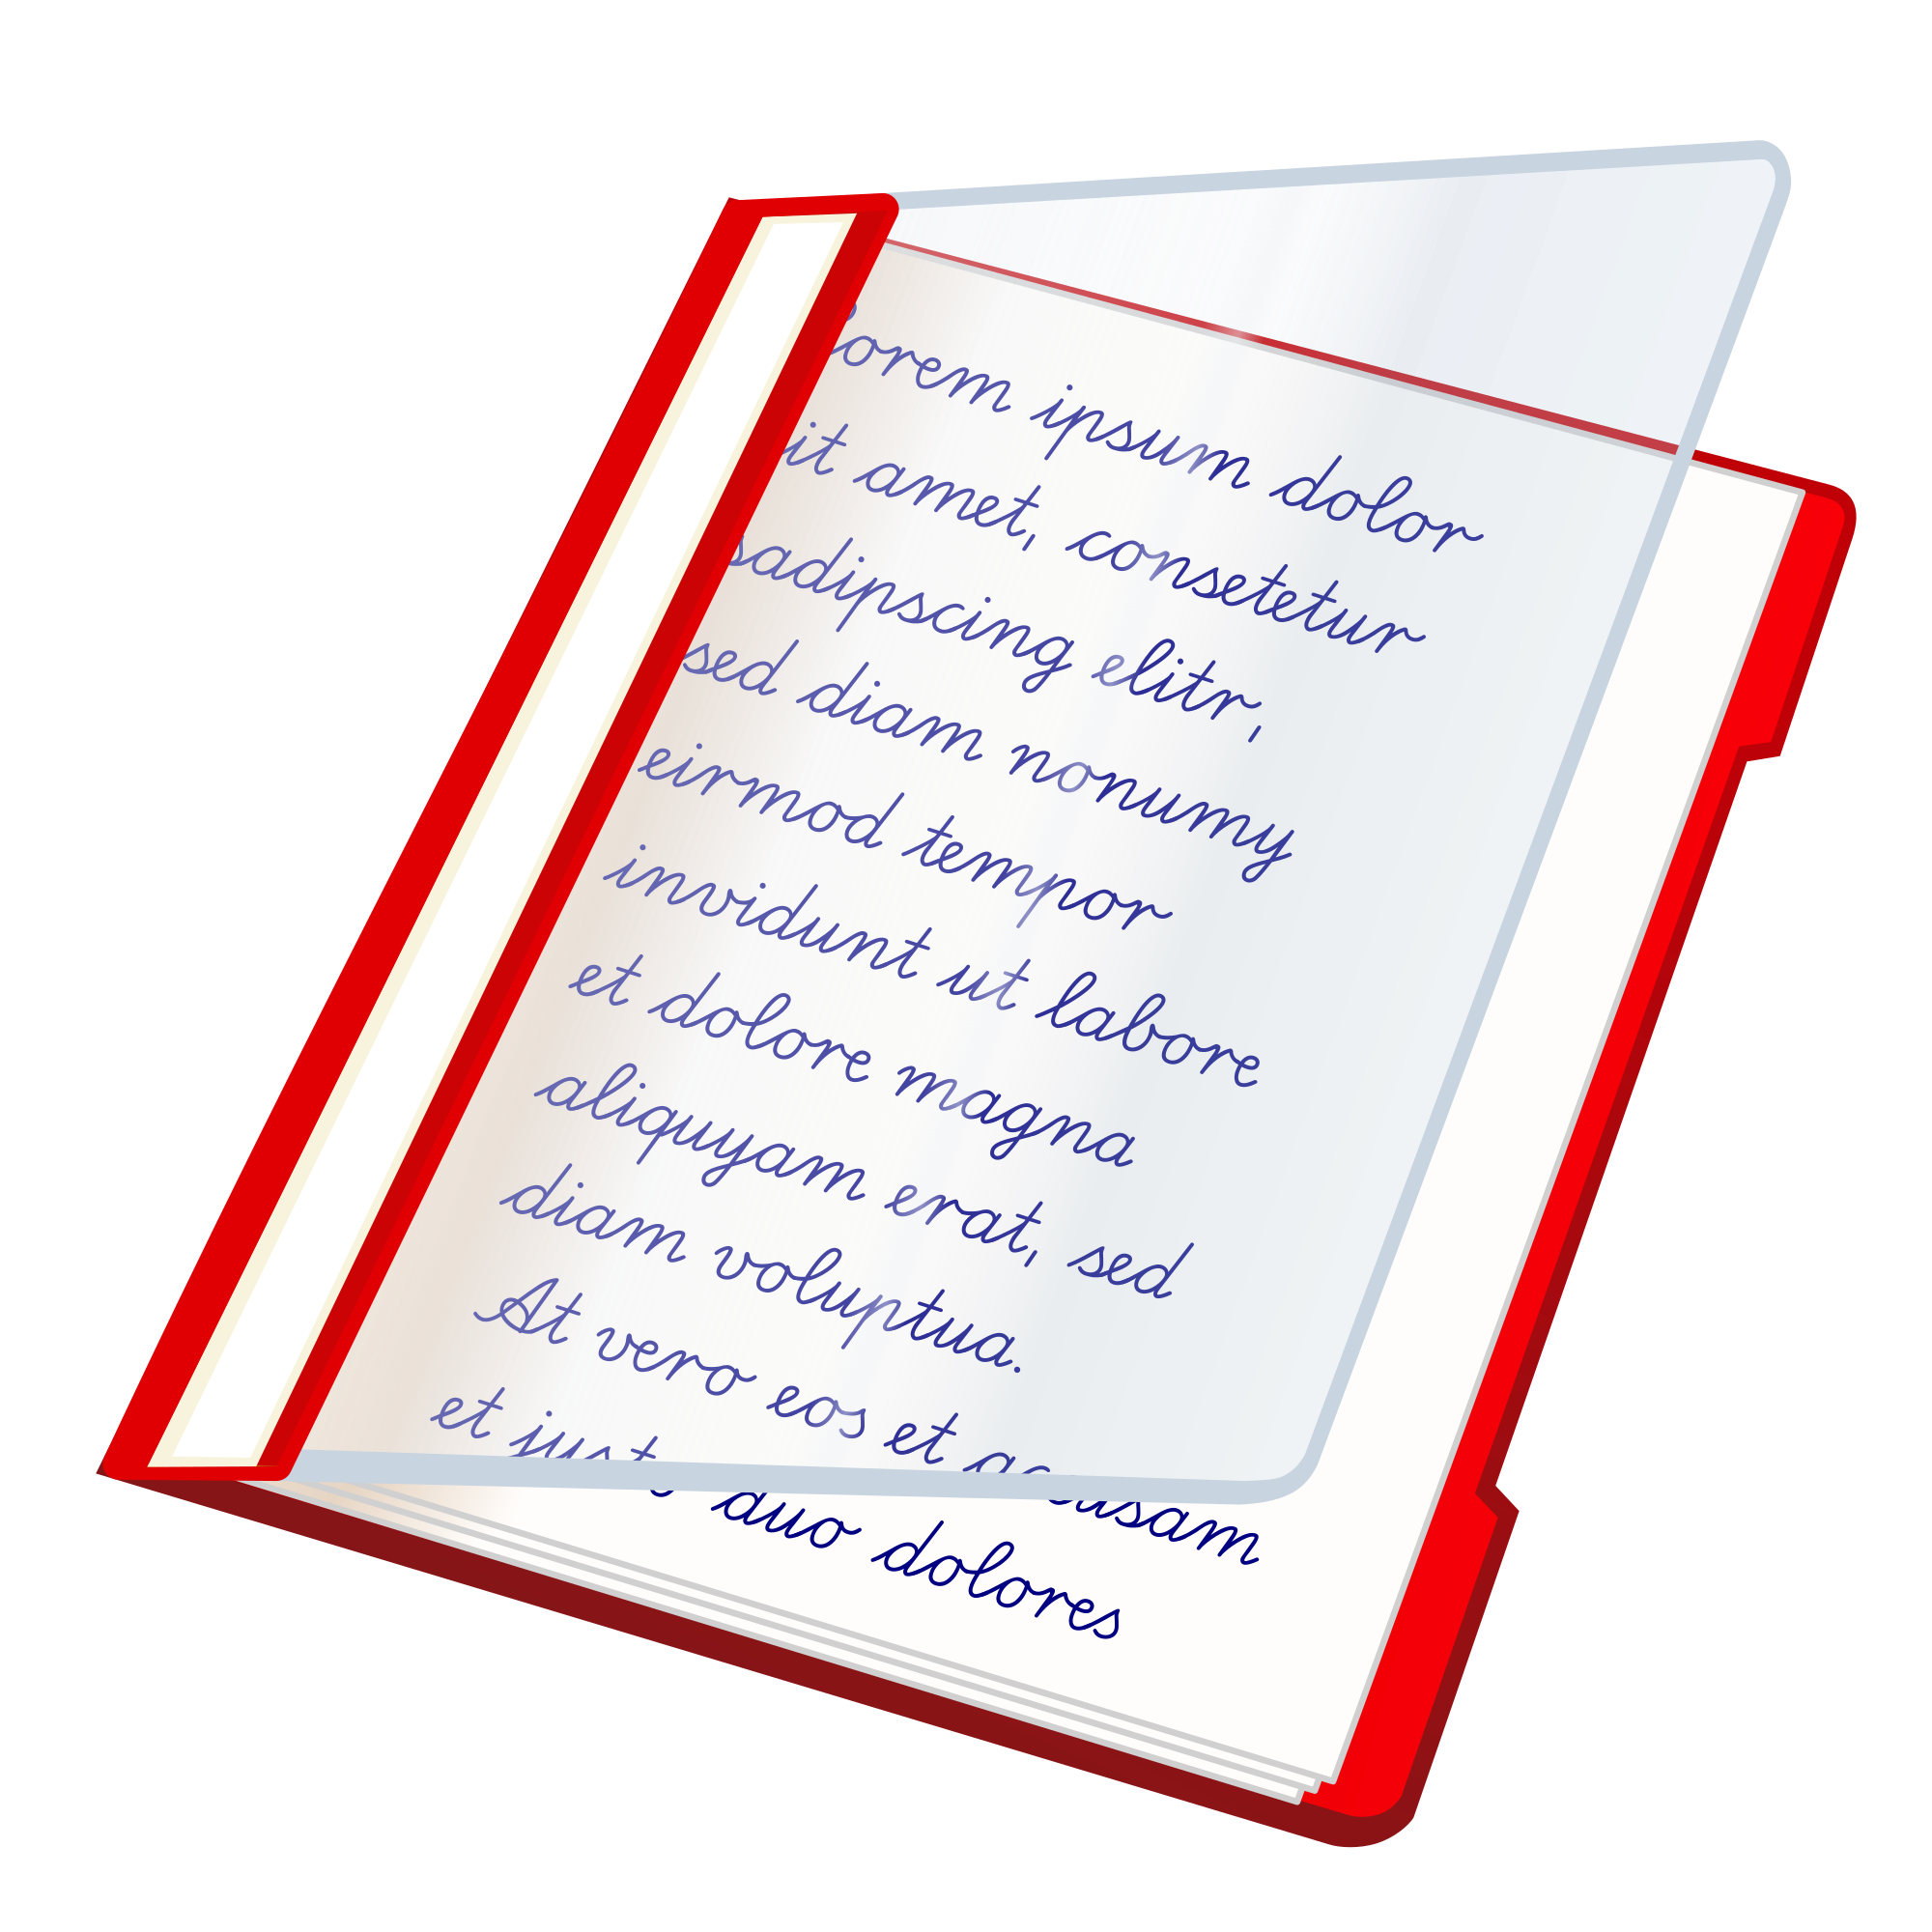 orem ipsum dolor
it amet, consetetur
sadipscing elitr,
sed diam nonumy
eirmod tempor
invidunt ut labore
et dolore magna
aliquyam erat, sed
diam voluptua.
At vero eos et accusam
et justo duo dolores